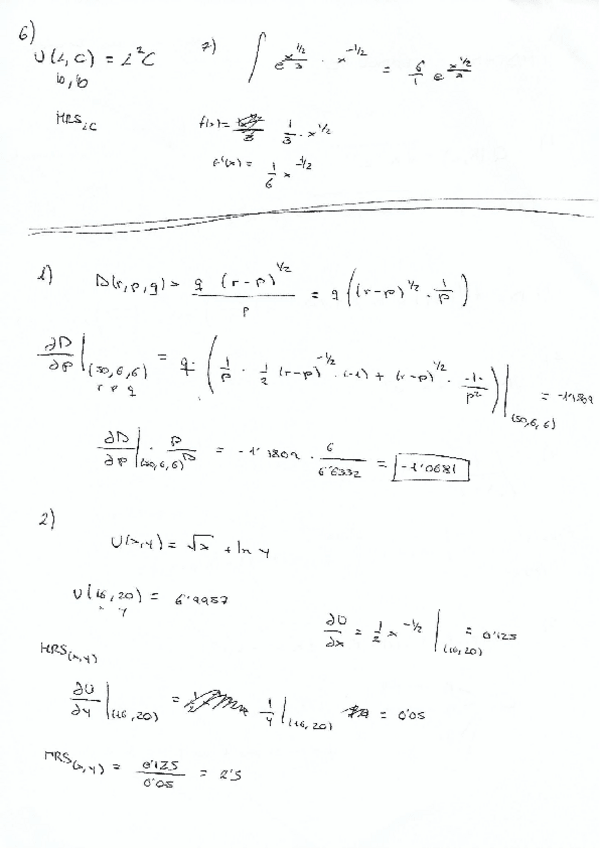 6)
U(L, C) = L²C
10, 10
MRS_LC
7) ∫ e^(x^(1/2)/3) · x^(-1/2) = 6/1 e^(x^(1/2)/3)
f(x) = 1/3 · x^(1/2)
f'(x) = 1/6 x^(-1/2)
1) D(r, p, q) = q (r-p)^(1/2) / p = q ((r-p)^(1/2) · 1/p)
∂D/∂p |(50,6,6) = q · (1/p · 1/2 (r-p)^(-1/2) · (-1) + (r-p)^(1/2) · -1/p²) |(50,6,6) = -1'1809
r p q
∂D/∂p |(50,6,6) · p/D = -1'1809 · 6/6'6332 = -1'0681
2)
U(x,y) = √x + ln y
U(16,20) = 6'9957
x y
∂U/∂x = 1/2 x^(-1/2) |(16,20) = 0'125
MRS(x,y)
∂U/∂y |(16,20) = 1/y |(16,20) = 0'05
MRS(x,y) = 0'125/0'05 = 2'5